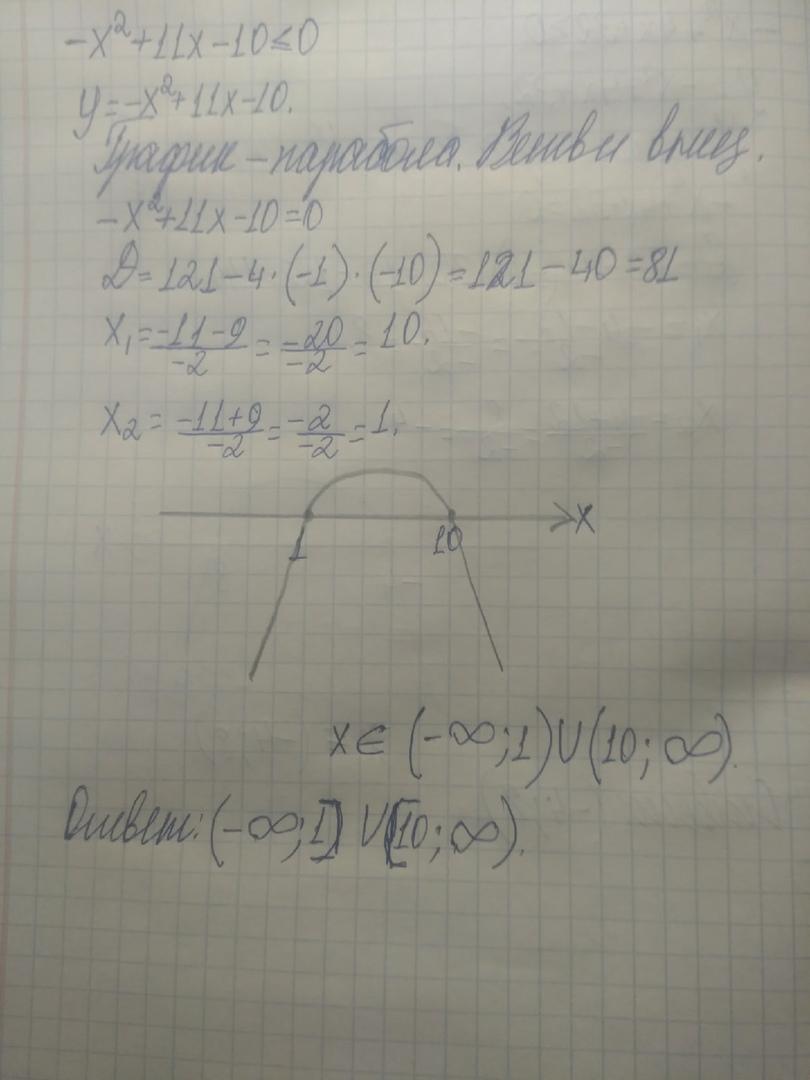 -x²+11x-10≤0
y=-x²+11x-10.
График - парабола. Ветви вниз.
-x²+11x-10=0
D=121-4·(-1)·(-10)=121-40=81
x₁=(-11-9)/(-2)=(-20)/(-2)=10.
x₂=(-11+9)/(-2)=(-2)/(-2)=1.
1 10 x
x∈(-∞;1)∪(10;∞).
Ответ: (-∞;1]∪[10;∞).